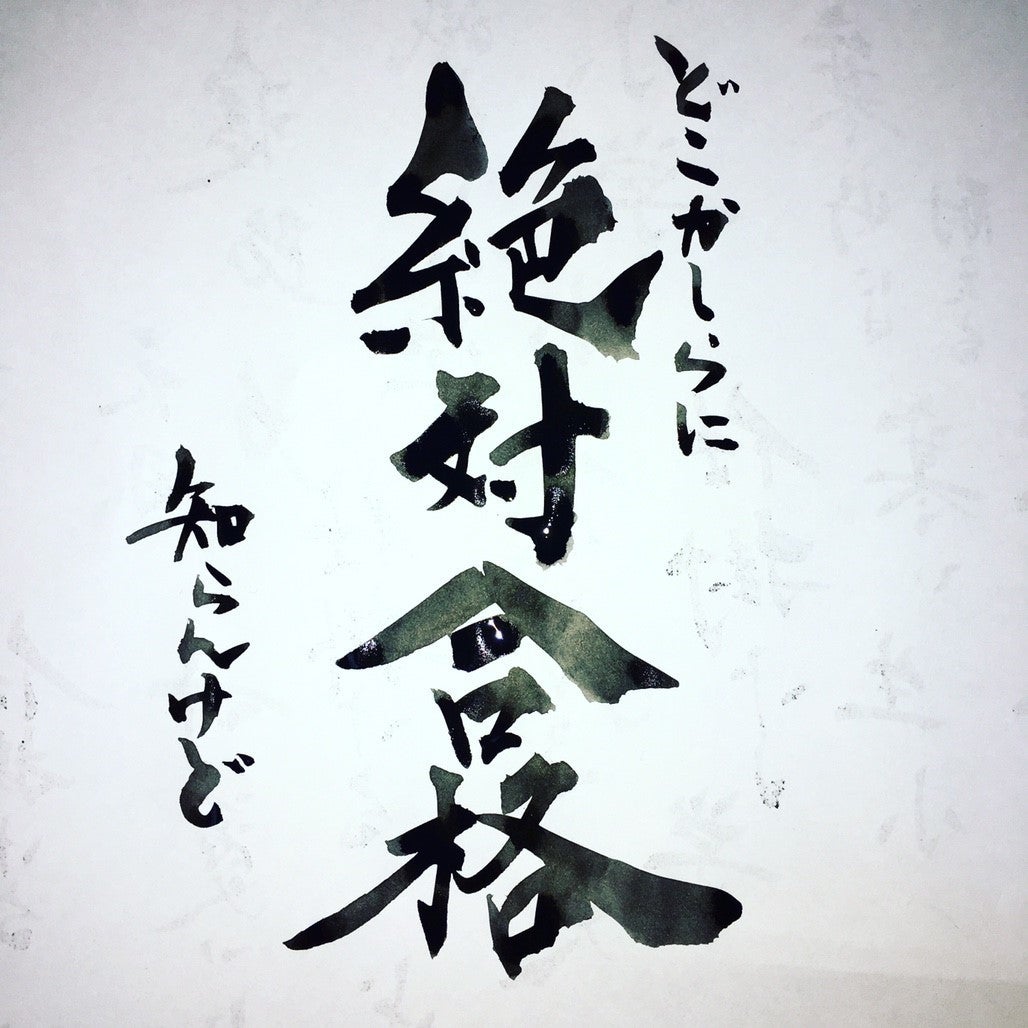 どこかしらに
絶対合格
知らんけど